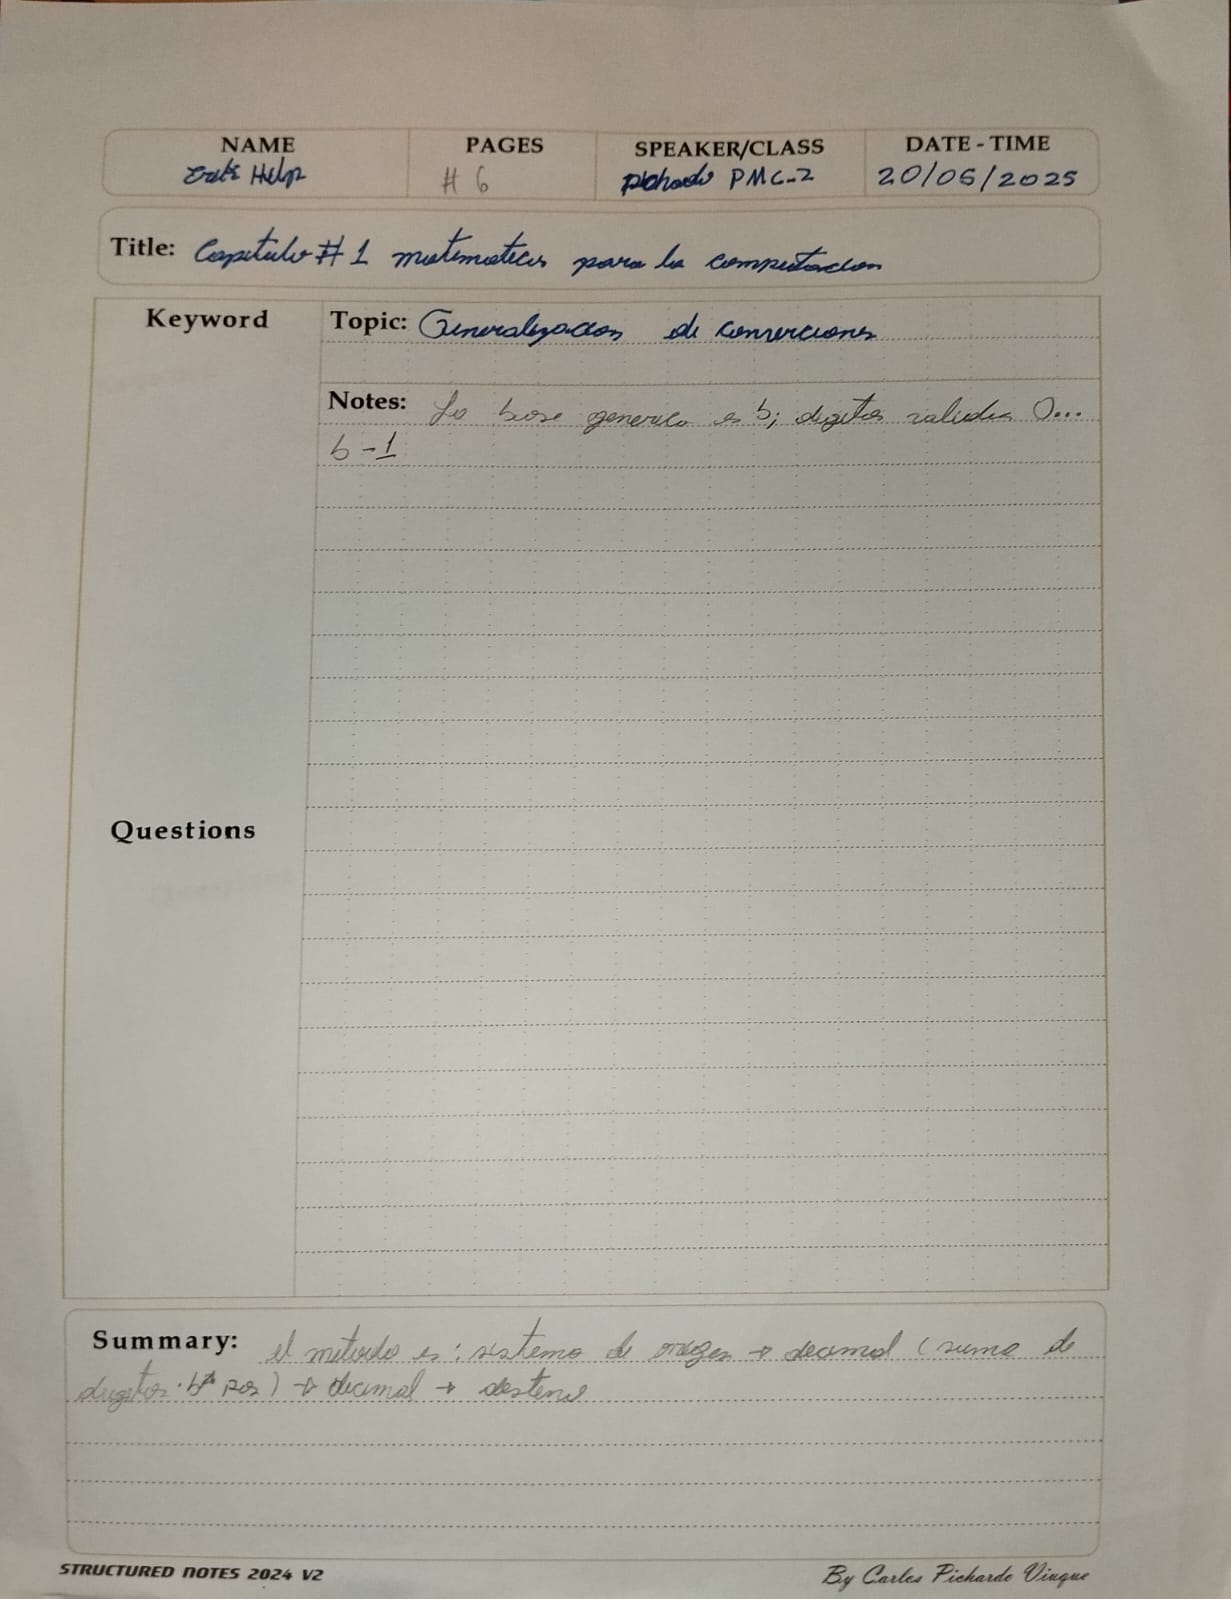 NAME PAGES SPEAKER/CLASS DATE - TIME
Help # 6 pichardo PMC-2 20/06/2025
Title: Capitulo # 1 matematicas para la computacion
Keyword Topic: Generalizacion de converciones
Notes: La base generica es b; digitos validos 0...
b-1
Questions
Summary: el metodo es: sistema de origen → decimal (suma de
digitos · b^ pos) → decimal → destino
STRUCTURED NOTES 2024 V2 By Carlos Pichardo Viuque